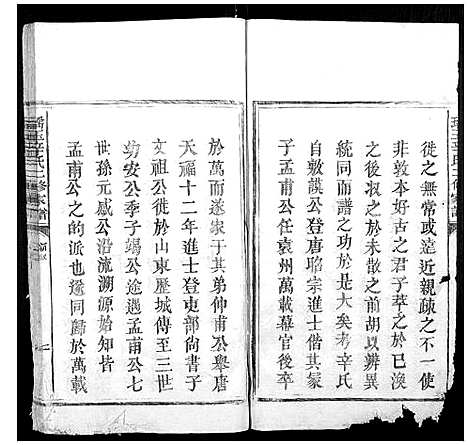 徙之無常或遠近親疎之不一使
非敦本好古之君子萃之已渙
之後収之於未散之前胡以辨異
統同而譜之功於是大矣考辛氏
自敖謨公登唐昭宗進士偕其冢
子孟甫公任袁州萬載幕官後卒
於萬而遂家于其弟仲甫公舉唐
天福十二年進士登吏部尚書子
文祖公徙於山東歷城傳至三世
幼安公季子竭公途遇孟甫公七
世孫元感公沿流溯源始知皆
孟甫公之的派也遂同歸於萬載